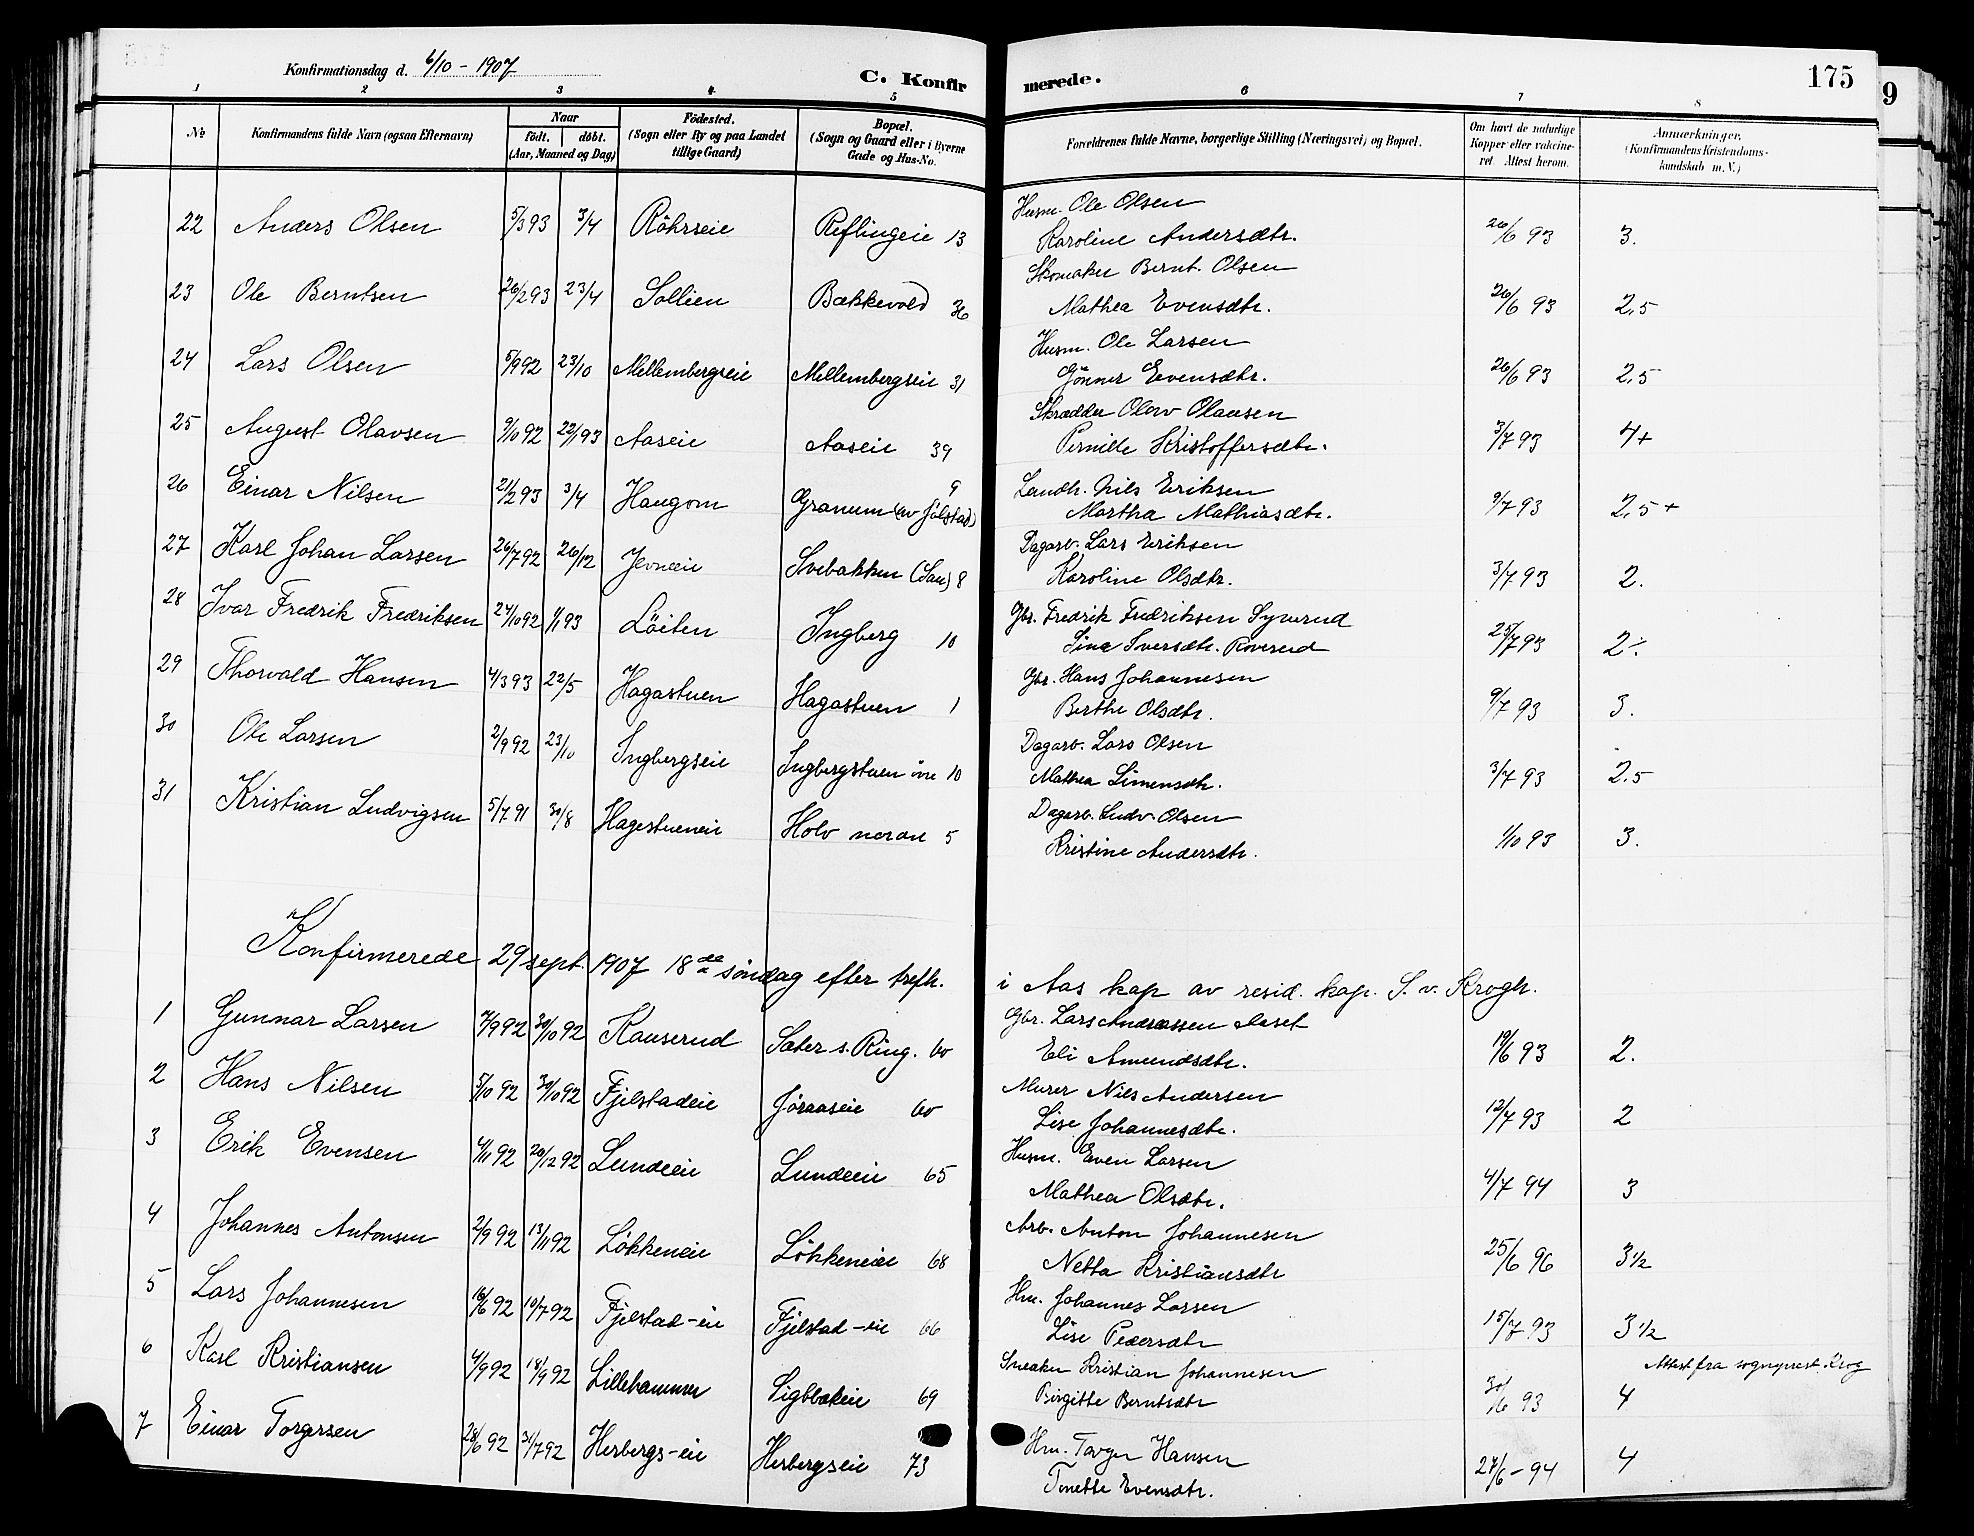 Konfirmationsdag d. 6/10 - 1907
C. Konfirmerede.
175
9
1 2 3 4 5 6 7 8
No
Konfirmandens fulde Navn (ogsaa Efternavn)
Naar
födt. döbt.
(Aar, Maaned og Dag)
Födested.
(Sogn eller By og paa Landet
tillige Gaard)
Bopæl.
(Sogn og Gaard eller i Byerne
Gade og Hus-No.
Forældrenes fulde Navne, borgerlige Stilling (Næringsvei) og Bopæl.
Om havt de naturlige
Kopper eller vakcine-
ret. Attest herom.
Anmærkninger.
(Konfirmandens Kristendoms-
kundskab m. V.)
22 Anders Olsen 5/3 93 3/4 Röhrseie Reflingeie 13 Husm. Ole Olsen
Karoline Andersdtr. 26/6 93 3.
23 Ole Berntsen 26/2 93 23/4 Sollien Bækkevold 36 Skomaker Bernt. Olsen
Mathea Evensdtr. 26/6 93 2,5
24 Lars Olsen 5/9 92 23/10 Mellembergseie Mellembergseie 31 Husm. Ole Larsen
Gönner Evensdtr. 26/6 93 2,5
25 August Olavsen 9/10 92 22/1 93 Aaseie Aaseie 39 Skrædder Olav Olausen
Pernille Kristoffersdtr. 3/7 93 4+
26 Einar Nilsen 21/2 93 3/4 Haugom Granum (av Jölstad) 9 Landh. Nils Eriksen
Martha Mathiasdtr. 9/7 93 2,5+
27 Karl Johan Larsen 26/7 92 26/12 Jevneie Svebakken (Sau) 8 Dagarb. Lars Eriksen
Karoline Olsdtr. 3/7 93 2.
28 Ivar Fredrik Fredriksen 24/10 92 1/1 93 Löiten Ingberg 10 Gbr. Fredrik Fredriksen Syverud
Sina Iversdtr. Roverud 25/7 93 2÷
29 Thorvald Hansen 4/3 93 22/5 Hagastuen Hagastuen 1 Gbr. Hans Johannesen
Berthe Olsdtr. 9/7 93 3.
30 Ole Larsen 2/9 92 23/10 Ingbergseie Ingbergstuen övre 10 Dagarb. Lars Olsen
Mathea Simensdtr. 3/7 93 2.5
31 Kristian Ludvigsen 5/7 91 30/8 Hagestueneie Holv nordre 5 Dagarb. Ludv. Olsen
Kristine Andersdtr. 1/10 93 3.
Konfirmerede 29 sept. 1907 18de søndag efter trefh. i Aas kap av resid. kap. S. v. Krogh.
1 Gunnar Larsen 7/9 92 30/10 92 Kauserud Sæter s. Ring. 60 Gbr. Lars Andreassen Aaset
Eli Amundsdtr. 19/6 93 2.
2 Hans Nilsen 5/10 92 30/10 92 Fjelstadeie Jøraaseie 60 Murer Nils Andersen
Lise Johannesdtr. 12/7 93 2
3 Erik Evensen 4/11 92 26/12 92 Lundeeie Lundeeie 65 Husm. Even Larsen
Mathea Olsdtr. 4/7 94 3
4 Johannes Antonsen 2/9 92 13/11 92 Lökkeneie Lökkeneie 68 Arb. Anton Johannesen
Netta Kristiansdtr 25/6 96 3 1/2
5 Lars Johannesen 16/6 92 10/7 92 Fjelstad-eie Fjelstad-eie 66 Hm. Johannes Larsen
Lise Pedersdtr 15/7 93 3 1/2
6 Karl Kristiansen 4/9 92 18/9 92 Lillehammer 69 Snekker Kristian Johannesen
Birgitte Berntsdtr 93 4 Attest fra sogneprest Krog
7 Einar Torgersen 28/6 92 31/7 92 Herbergs-eie Herbergseie 73 Hm. Torger Hansen
Tonette Evensdtr. 27/6-94 4